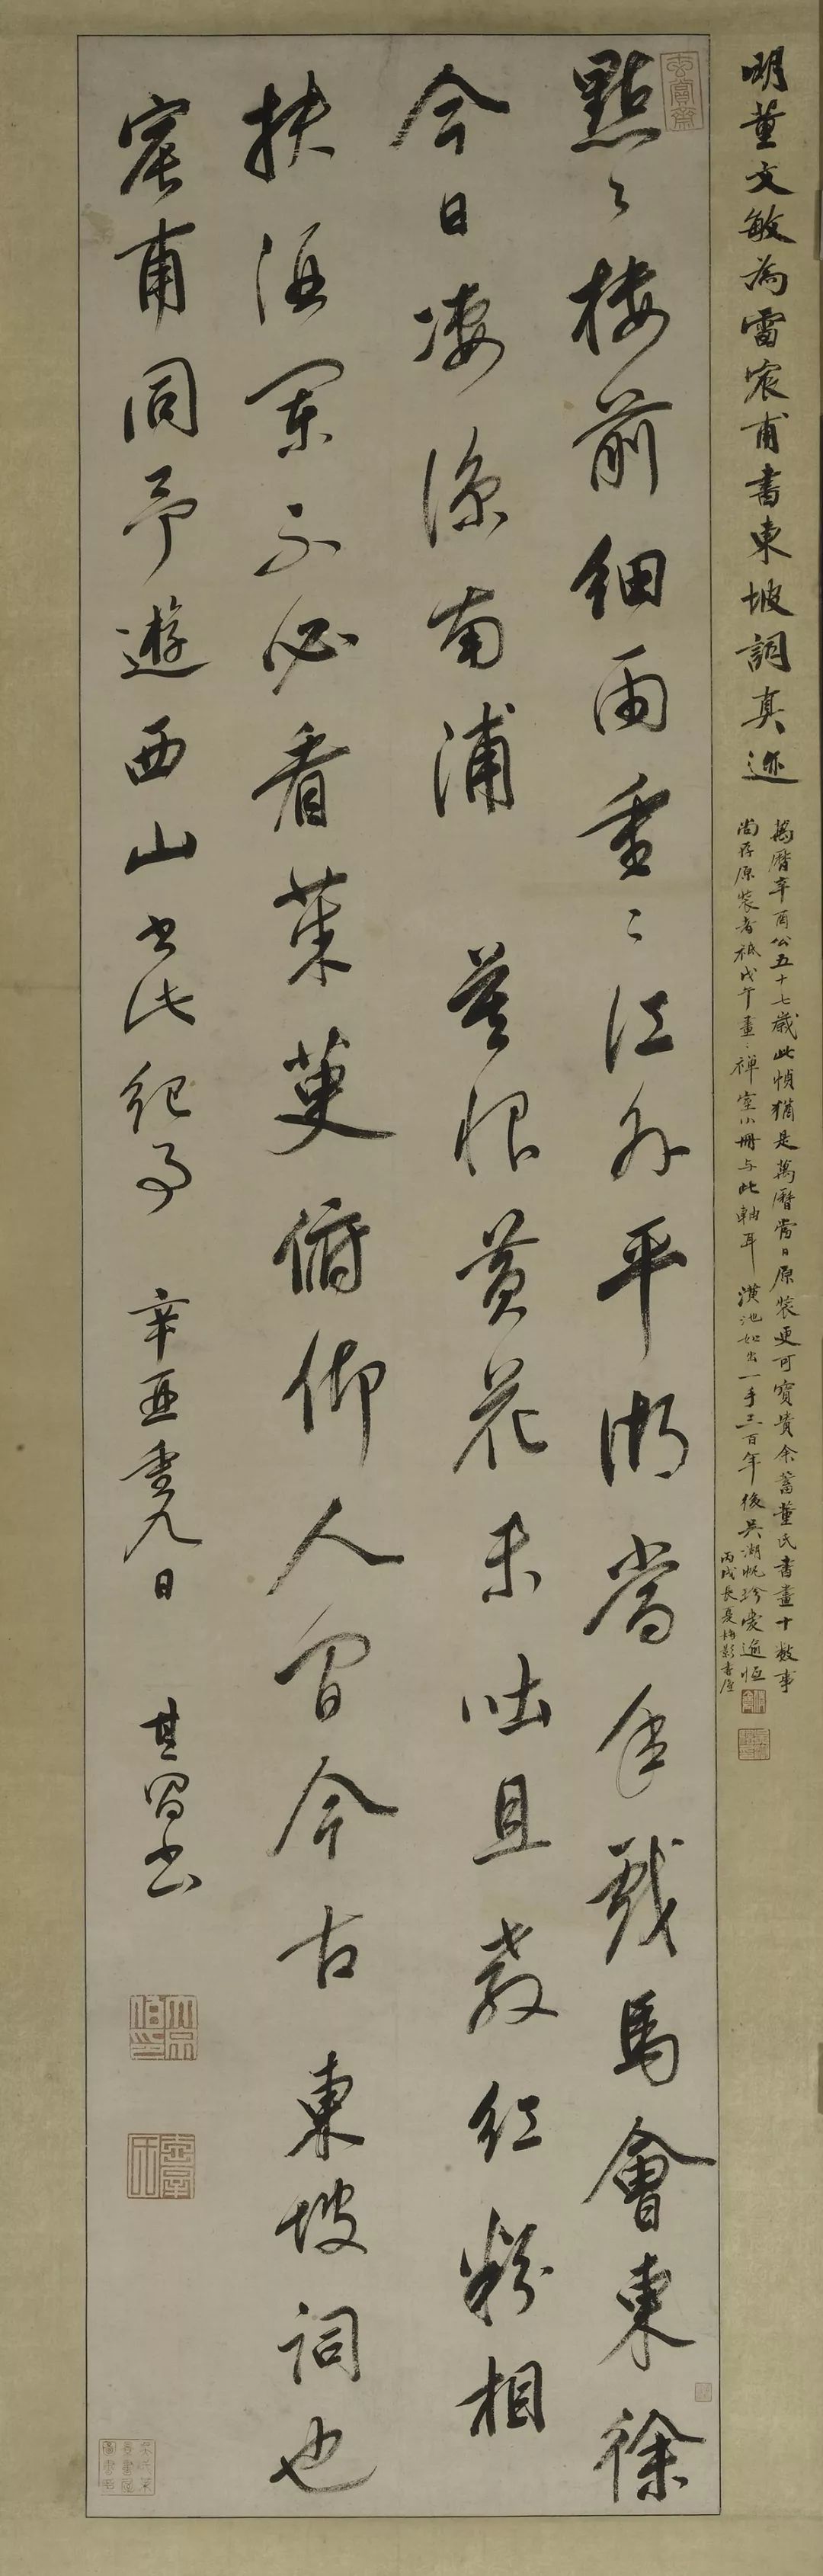 明董文敏為雷宸甫書東坡詞真迹
萬曆辛酉公五十七歲此幀猶是萬曆當日原裝更可寶貴余蓄董氏書畫十數事
尚存原裝者祗戊午畫禪室小冊与此軸耳 潢池如出一手三百年後吳湖帆珍裘識
丙戌長夏梅影書屋
玄賞齋
點〻樓前細雨重〻江外平湖當年戲馬會東徐
今日凄涼南浦 莫恨黃花未吐且教紅粉相
扶酒闌不必看茱萸俯仰人間今古東坡詞也
宸甫同予遊西山書此紀事 辛亥重九日 其昌書